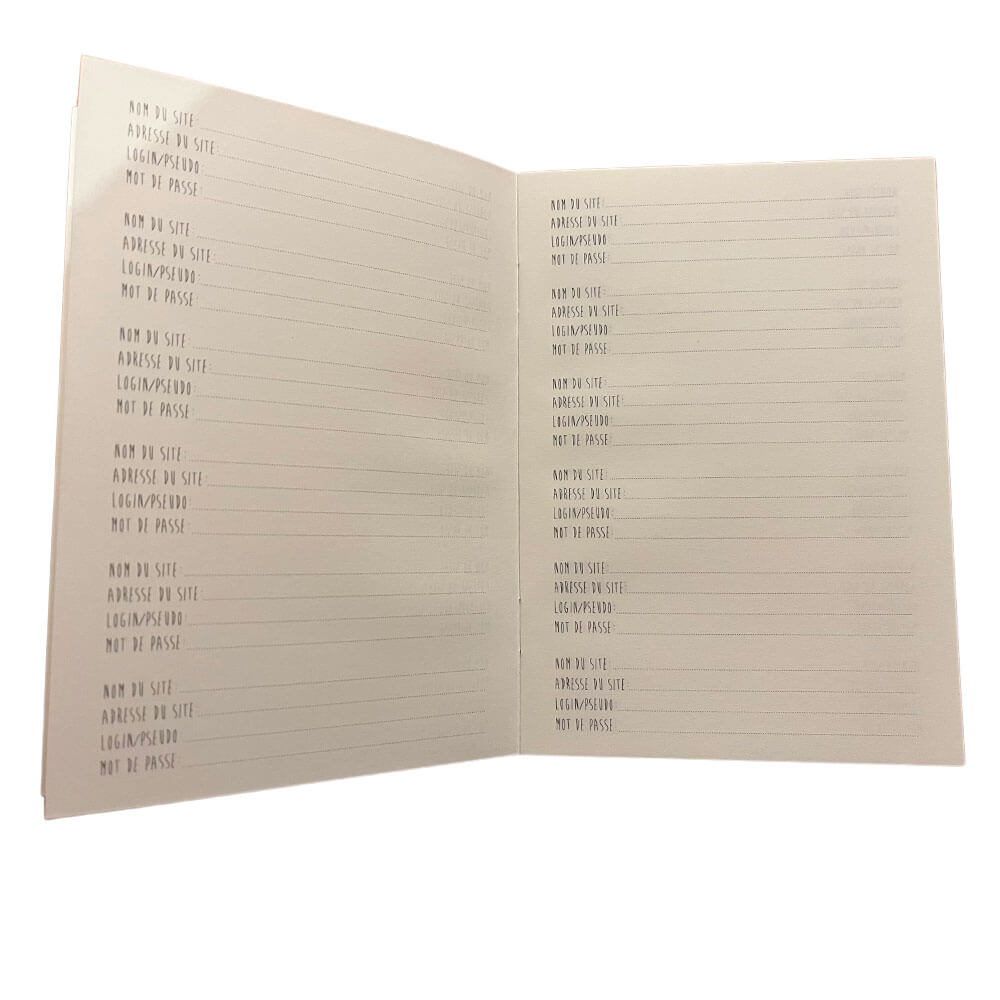 NOM DU SITE:
ADRESSE DU SITE:
LOGIN/PSEUDO:
MOT DE PASSE:
NOM DU SITE:
ADRESSE DU SITE:
LOGIN/PSEUDO:
MOT DE PASSE:
NOM DU SITE:
ADRESSE DU SITE:
LOGIN/PSEUDO:
MOT DE PASSE:
NOM DU SITE:
ADRESSE DU SITE:
LOGIN/PSEUDO:
MOT DE PASSE:
NOM DU SITE:
ADRESSE DU SITE:
LOGIN/PSEUDO:
MOT DE PASSE:
NOM DU SITE:
ADRESSE DU SITE:
LOGIN/PSEUDO:
MOT DE PASSE:
NOM DU SITE:
ADRESSE DU SITE:
LOGIN/PSEUDO:
MOT DE PASSE:
NOM DU SITE:
ADRESSE DU SITE:
LOGIN/PSEUDO:
MOT DE PASSE:
NOM DU SITE:
ADRESSE DU SITE:
LOGIN/PSEUDO:
MOT DE PASSE:
NOM DU SITE:
ADRESSE DU SITE:
LOGIN/PSEUDO:
MOT DE PASSE:
NOM DU SITE:
ADRESSE DU SITE:
LOGIN/PSEUDO:
MOT DE PASSE:
NOM DU SITE:
ADRESSE DU SITE:
LOGIN/PSEUDO:
MOT DE PASSE: